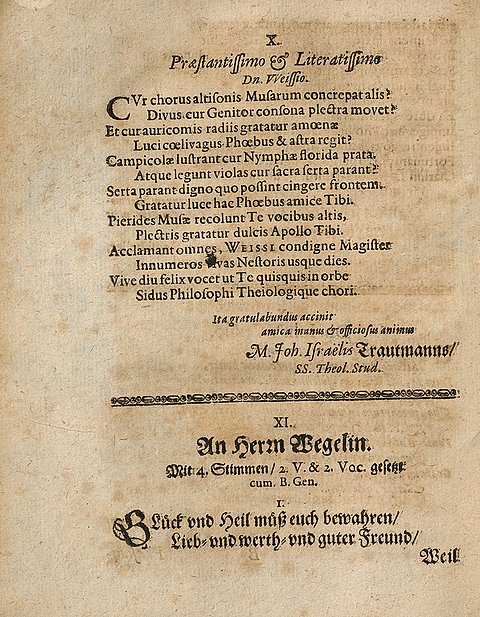 X.
Præſtantiſſimo & Literatiſſimo
Dn. Weiſſio.
CVr chorus altiſonis Muſarum concrepat alis?
Divus cur Genitor conſona plectra movet?
Et cur auricomis radiis gratatur amœnæ
Luci cœlivagus Phœbus & aſtra regit?
Campicolæ luſtrant cur Nymphæ florida prata,
Atque legunt violas cur ſacra ſerta parant?
Serta parant digno quo poſſint cingere frontem,
Gratatur luce hac Phœbus amice Tibi.
Pierides Muſæ recolunt Te vocibus altis,
Plectris gratatur dulcis Apollo Tibi.
Acclamant omnes, WEISSI condigne Magiſter
Innumeros vivas Neſtoris usque dies.
Vive diu felix vocet ut Te quisquis in orbe
Sidus Philoſophi Theiologique chori.
Ita gratulabundus accinit
amica manus & officioſus animus
M. Joh. Iſraëlis Trautmanns/
SS. Theol. Stud.
XI.
An Herrn Wegelin.
Mit 4. Stimmen/ 2. V. & 2. Voc. geſetzt
cum. B. Gen.
1.
GLück vnd Heil müß euch bewahren/
Lieb- vnd werth- vnd guter Freund/
Weil